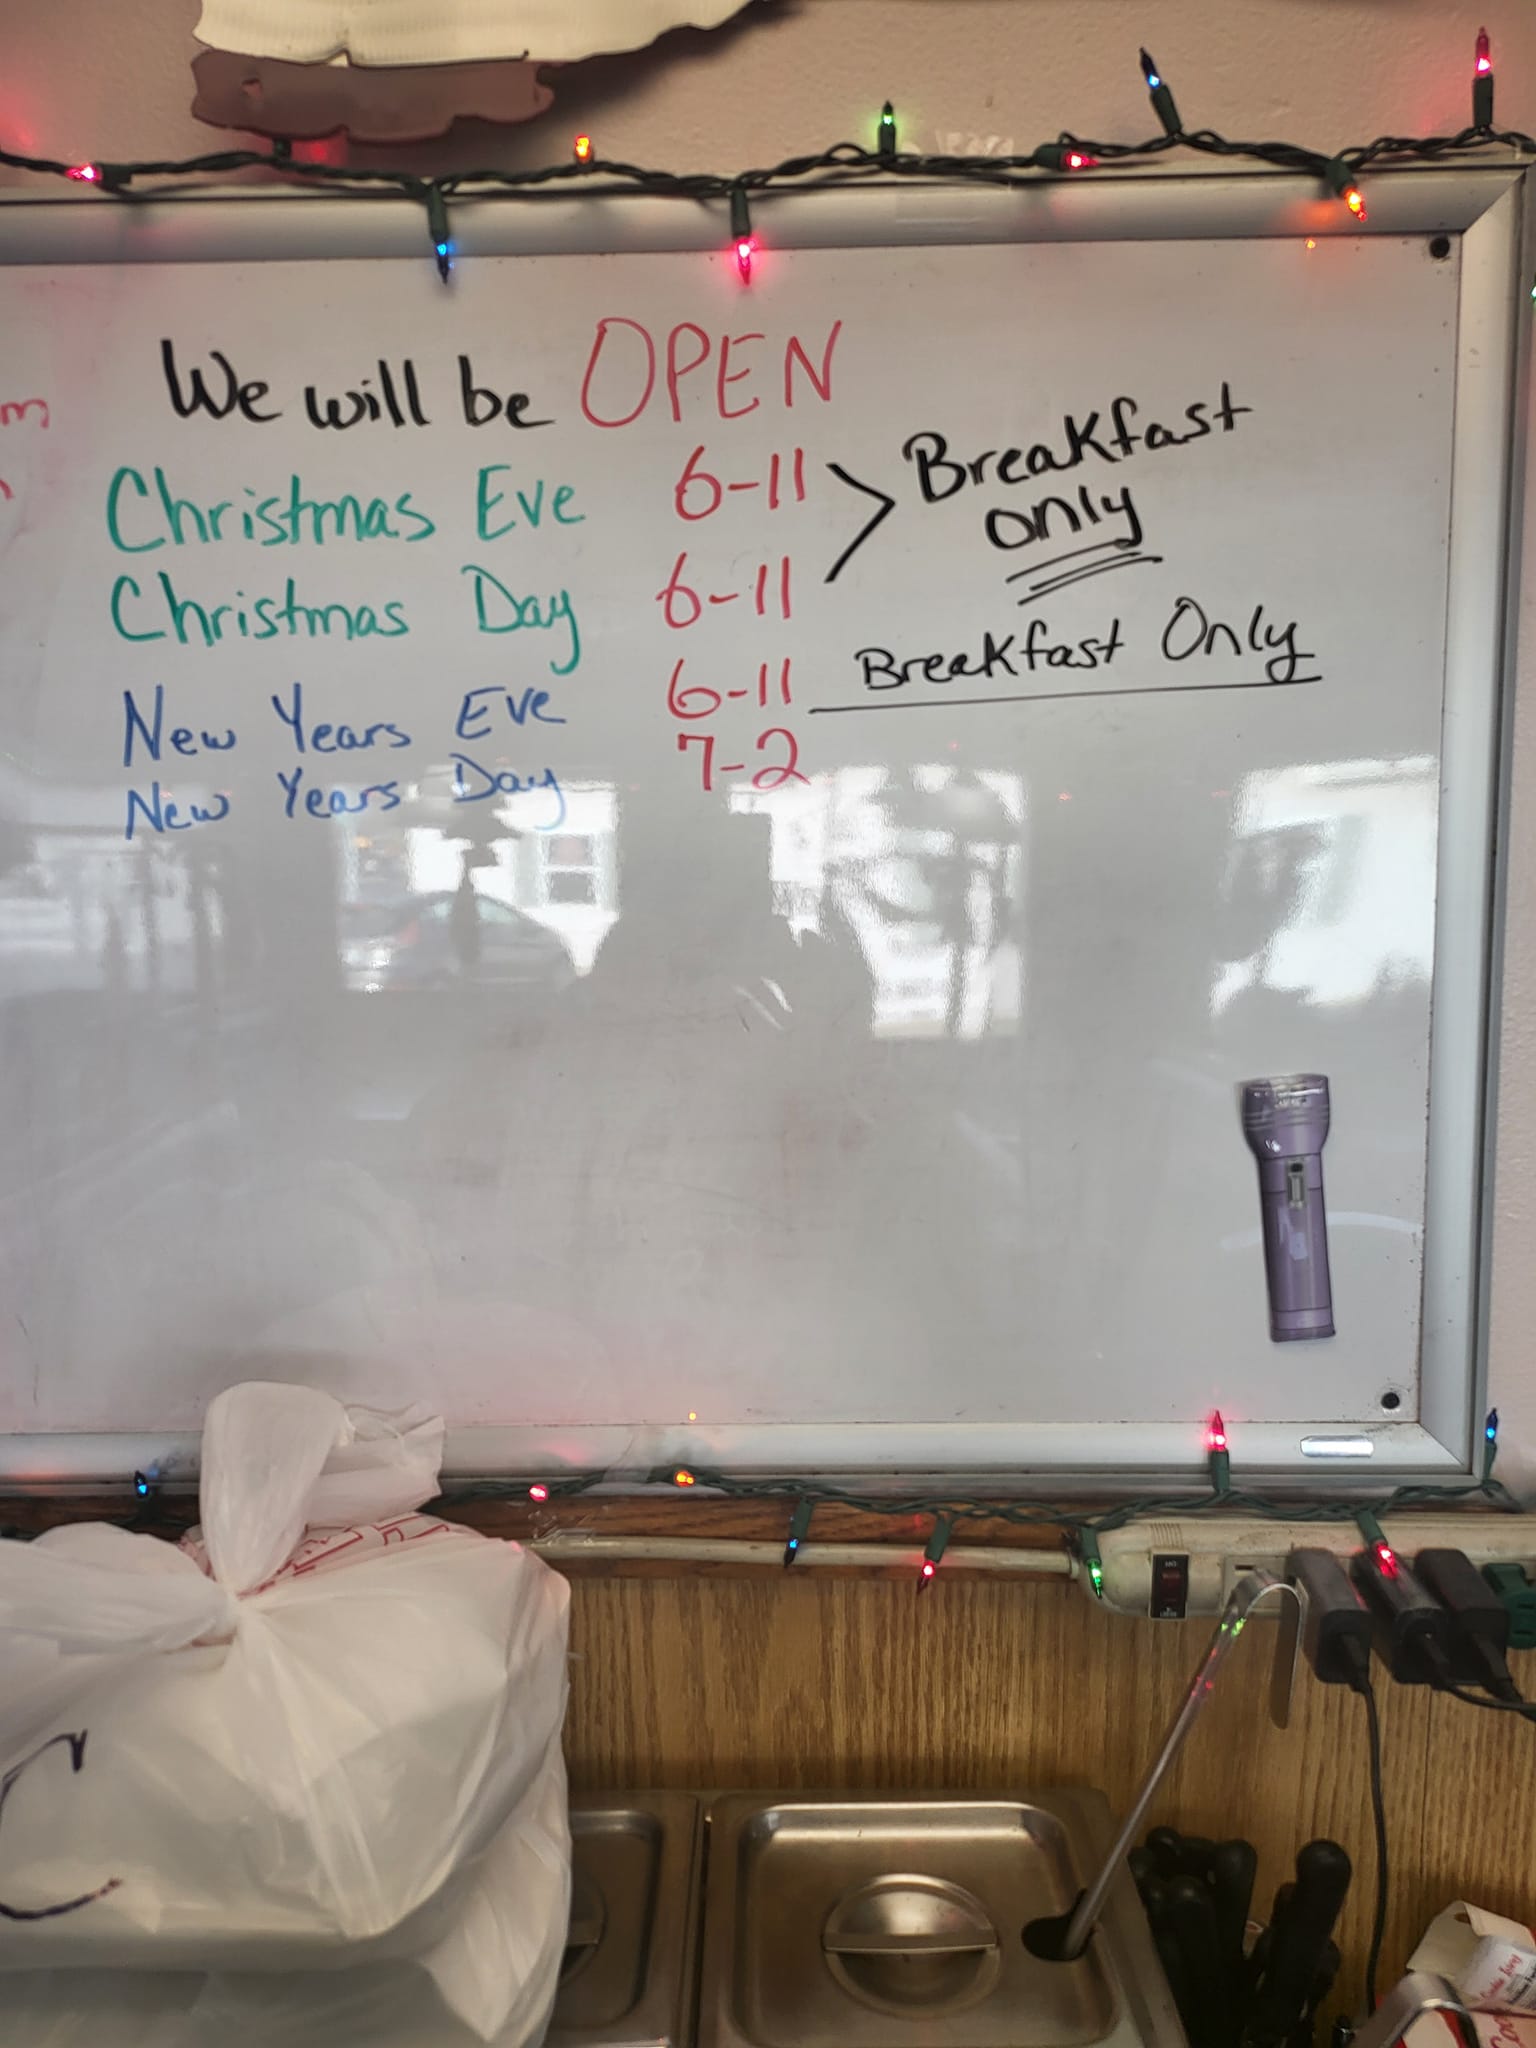 We will be OPEN
Christmas Eve 6-11 > Breakfast only
Christmas Day 6-11
New Years Eve 6-11 Breakfast Only
New Years Day 7-2
C